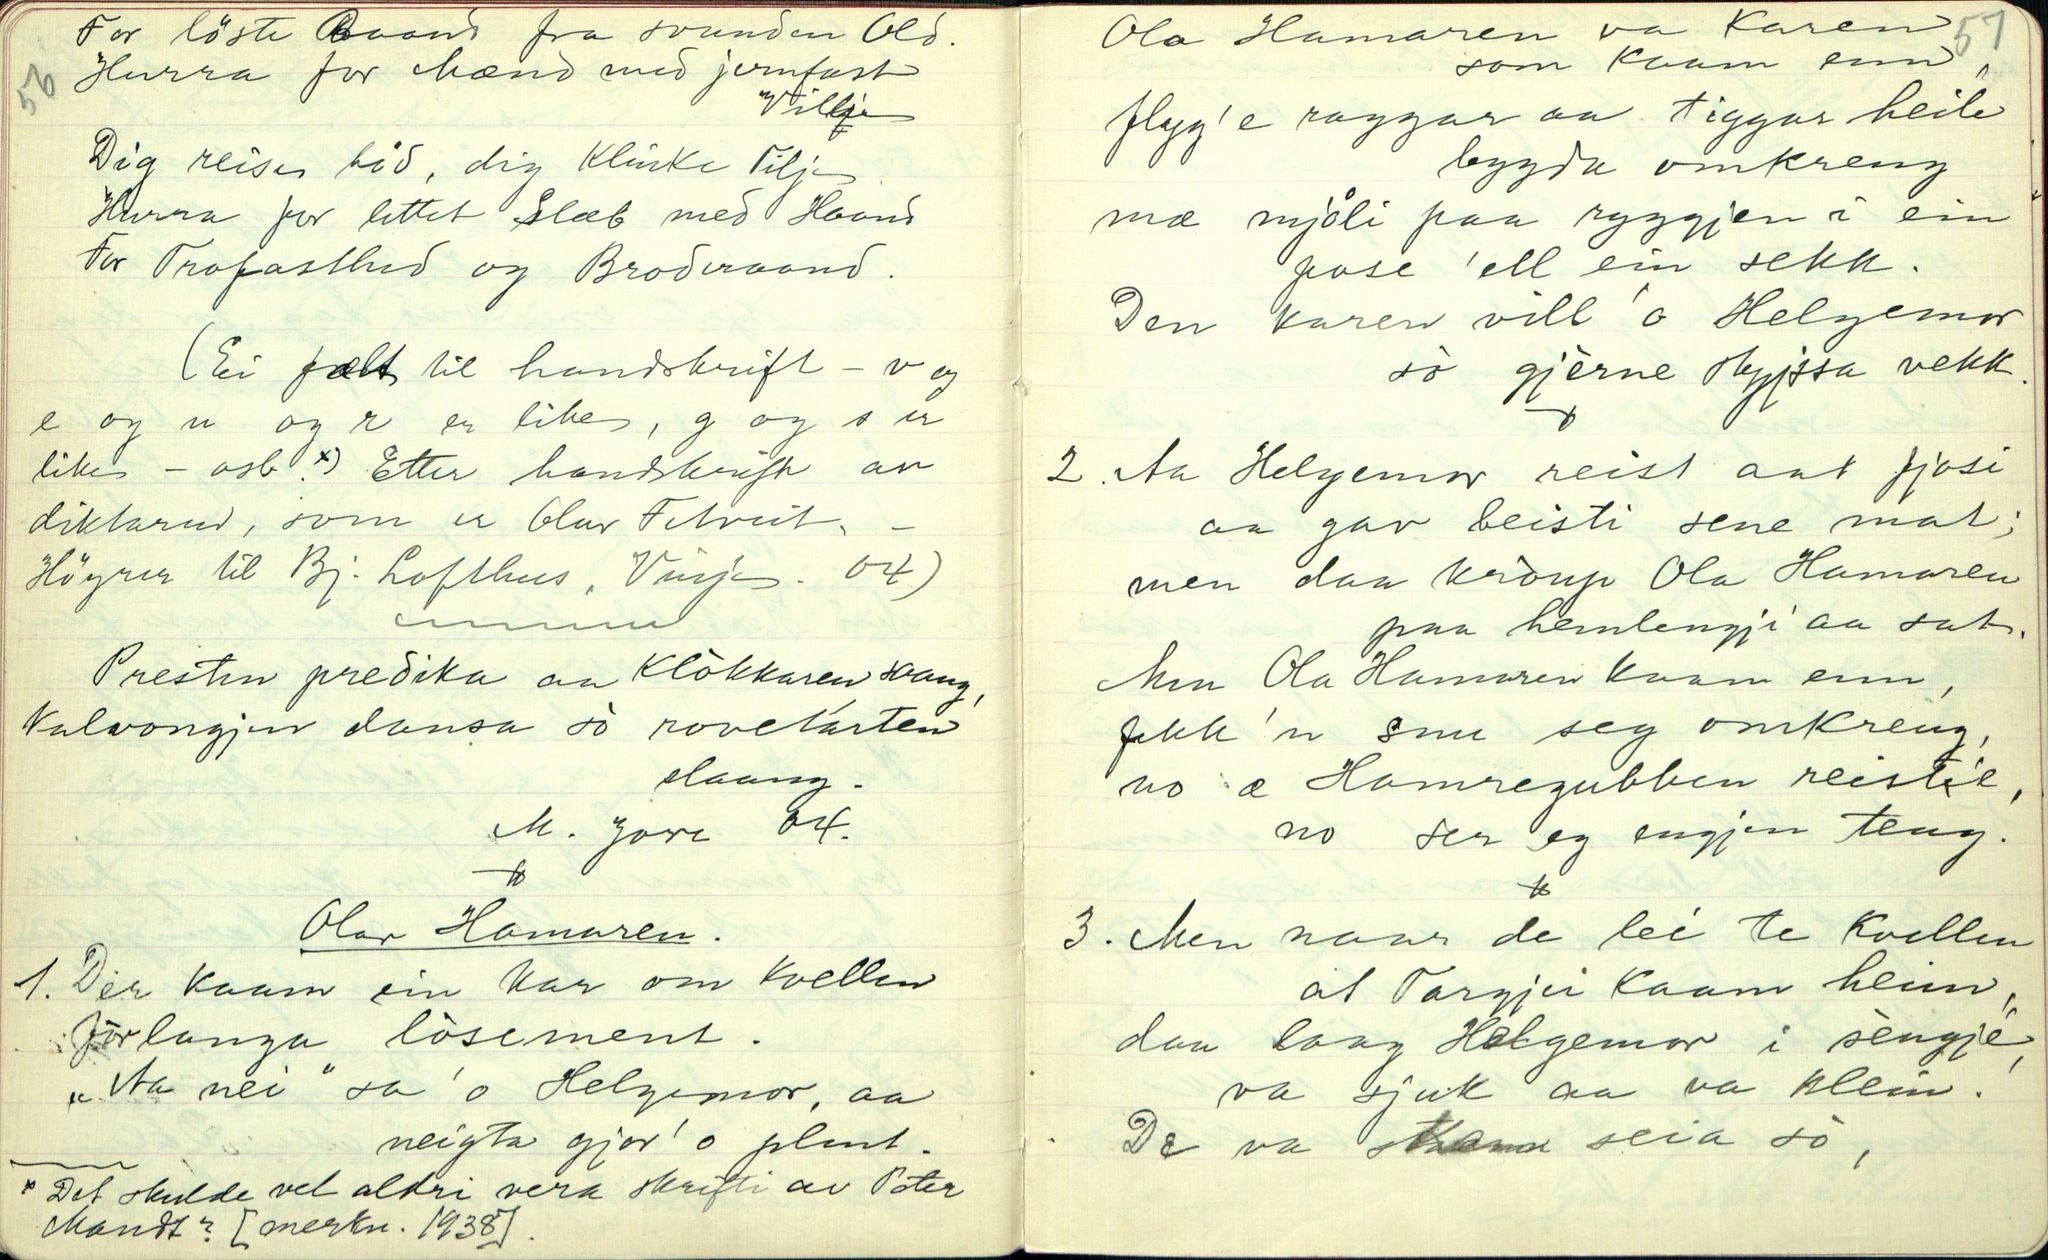 56
For löste Baand fra svunden Old.
Hurra for Mænd med jernfast
Vilje
Dig reises bö̊d, dig klinke Tilje
Hurra for lettet Slæb med Haand
For Trofasthed og Broderaand.
(Ei fælt til handskrift – v og
e og n og r er like, g og s er
like – osb.ˣ) Etter handskrift av
diktaren, som er Olav Fetveit. –
Höyrer til Bj. Lofthus, Vinje. 04)
Presten predika aa Klòkkaren svang,
Kalvongjen dansa sò rovetarten
slaang.
M. Jore 04.
Olav Hamaren.
1. Dèr kaam ein kar om kvellen
förlanga lòsement.
"Aa nei" sa 'o Helgemor, aa
neigta gjor' o plent.
* Det skulde vel aldri vera skrifti av Peter
Mandt? [merkn. 1938].
57
Ola Hamaren va karen
som kaam enn,
flyg'e raggar aa tiggar heile
bygda omkreng
mæ mjöli paa ryggjen i ein
pose 'ell ein sekk.
Den karen vill 'o Helgemor
sò gjèrne skyssa vekk.
2. Aa Helgemor reist aat fjosi
aa gav beisti sene mat;
men daa kròup Ola Hamaren
paa hemlengji aa sat.
Men Ola Hamaren kaam enn,
fekk 'n snu seg omkreng,
no æ Hamregubben reist'e,
no ser eg engjen teng.
3. Men naar de lei te kvellen
at Targjei kaam heim,
daa laag Helgemor i sèngjé,
va sjuk aa va klein.
De va skamm seia sò,